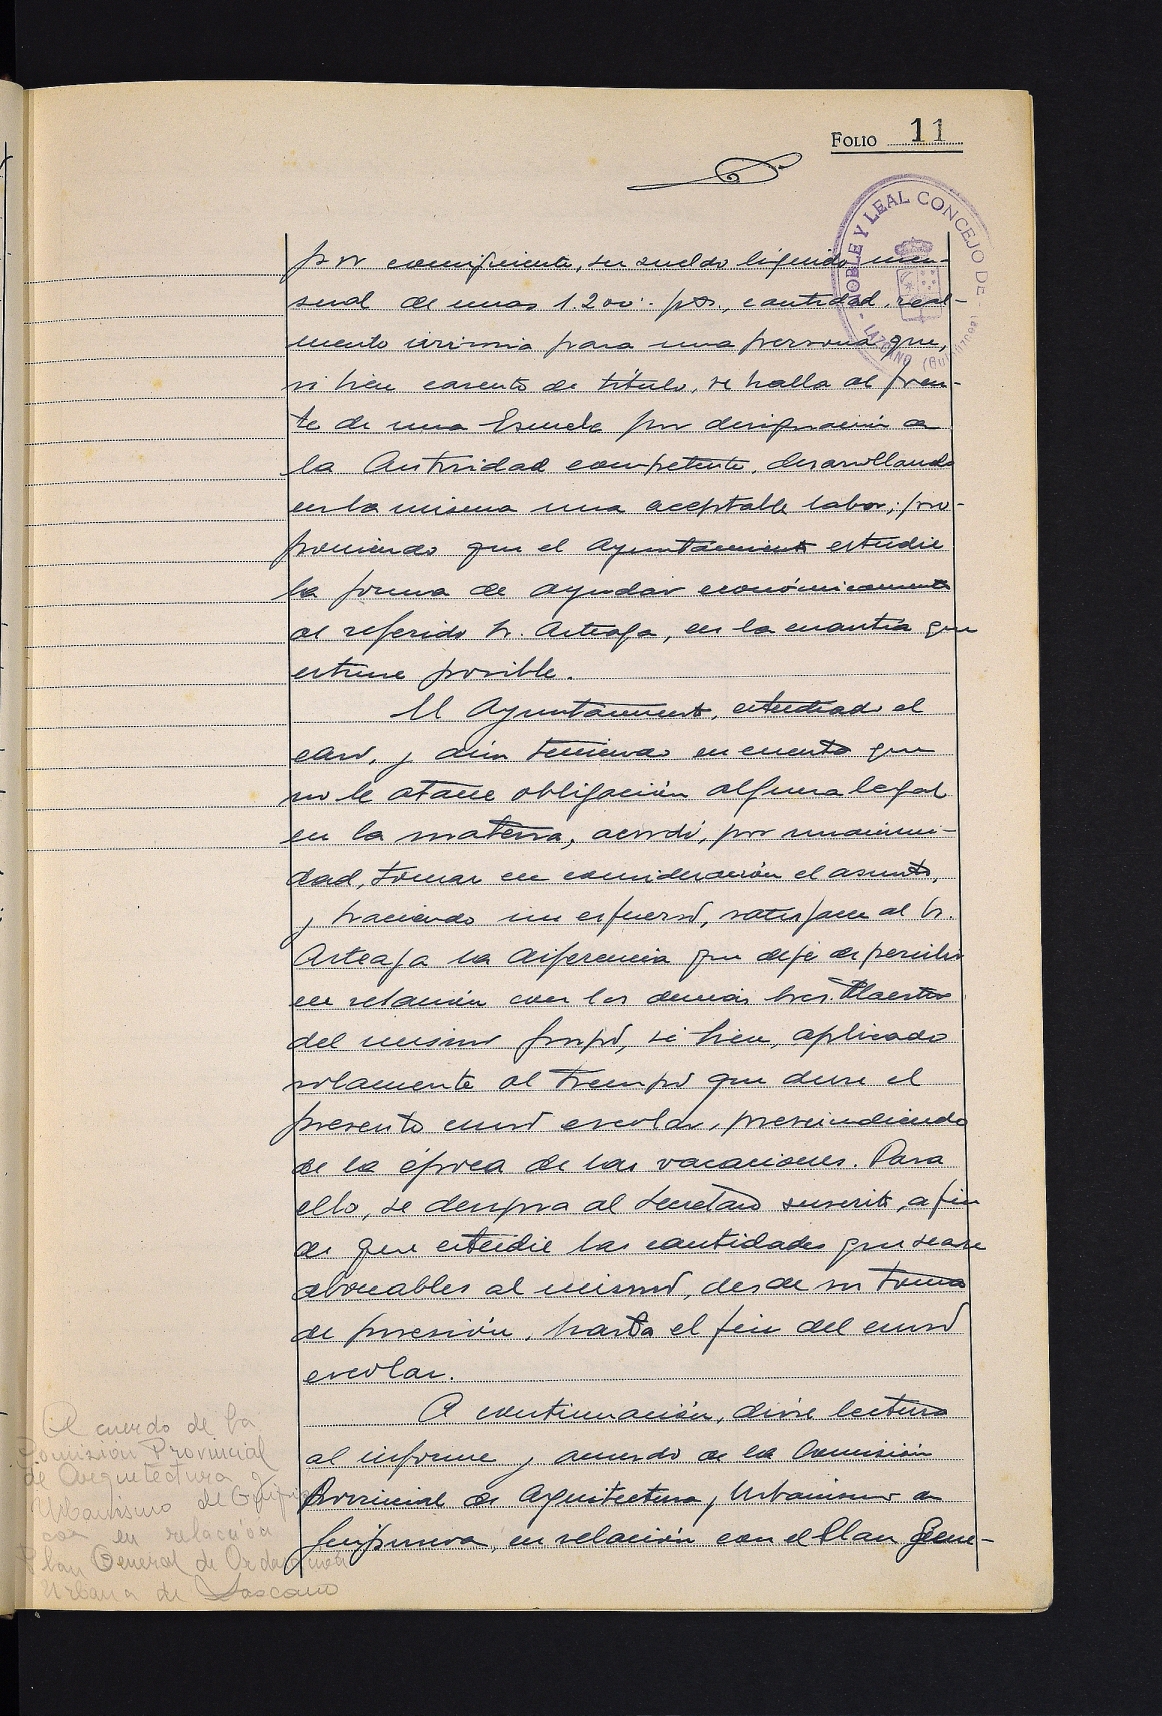 FOLIO 11
NOBLE Y LEAL CONCEJO DE
- LAZCANO (Guipúzcoa) -
por consiguiente, su sueldo líquido men-
sual de unas 1.200.- pts., cantidad real-
mente irrisoria para una persona que,
si bien carente de título, se halla al fren-
te de una Escuela por designación de
la Autoridad competente, desarrollando
en la misma una aceptable labor; pro-
poniendo que el Ayuntamiento estudie
la forma de ayudar económicamente
al referido Sr. Arteaga, en la cuantía que
estime posible.
El Ayuntamiento, estudiado el
caso, y aún teniendo en cuenta que
no le atañe obligación alguna legal
en la materia, acordó, por unanimi-
dad, tomar en consideración el asunto,
y haciendo un esfuerzo, satisfacer al Sr.
Arteaga la diferencia que deje de percibir
en relación con los demás Sres. Maestros
del mismo grupo, si bien, aplicado
solamente al tiempo que dure el
presente curso escolar, prescindiendo
de la época de las vacaciones. Para
ello, se designa al Secretario suscrito, a fin
de que estudie las cantidades que sean
abonables al mismo, desde su toma
de posesión, hasta el fin del curso
escolar.
A continuación, dióse lectura
al informe y acuerdo de la Comisión
Provincial de Arquitectura y Urbanismo de
Guipúzcoa, en relación con el Plan Gene-
Acuerdo de la
Comisión Provincial
de Arquitectura y
Urbanismo de Guipúz
coa en relación
Plan General de Ordenación
Urbana de Lazcano